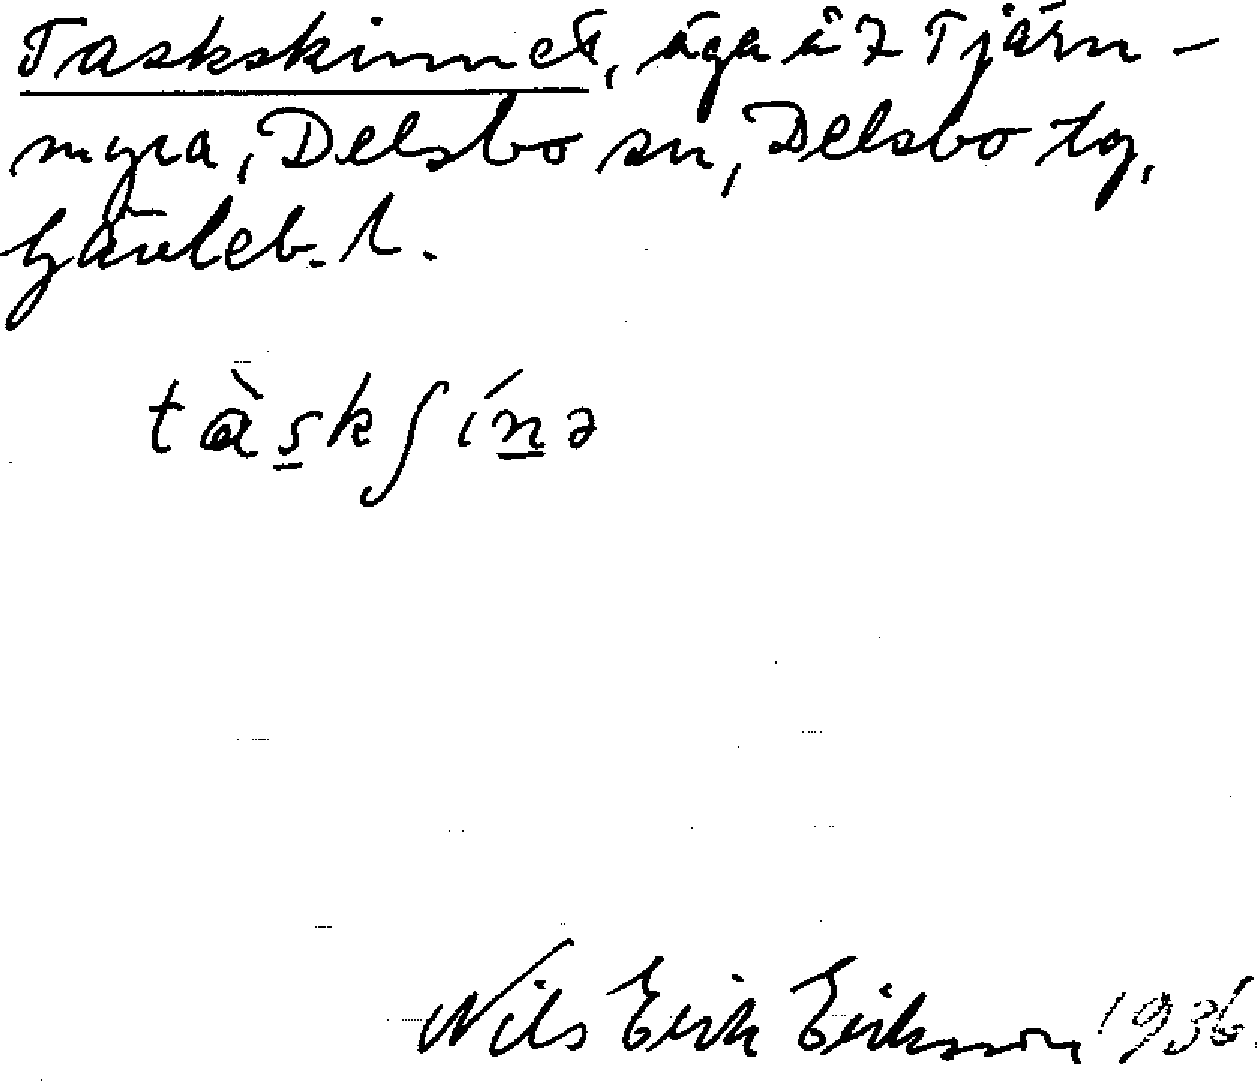 Taskskinnet, äga å 7 Tjärn-
myra, Delsbo sn, Delsbo tg,
Gävleb. l.
tàskʃínə
Nils Erik Eriksson 1936.